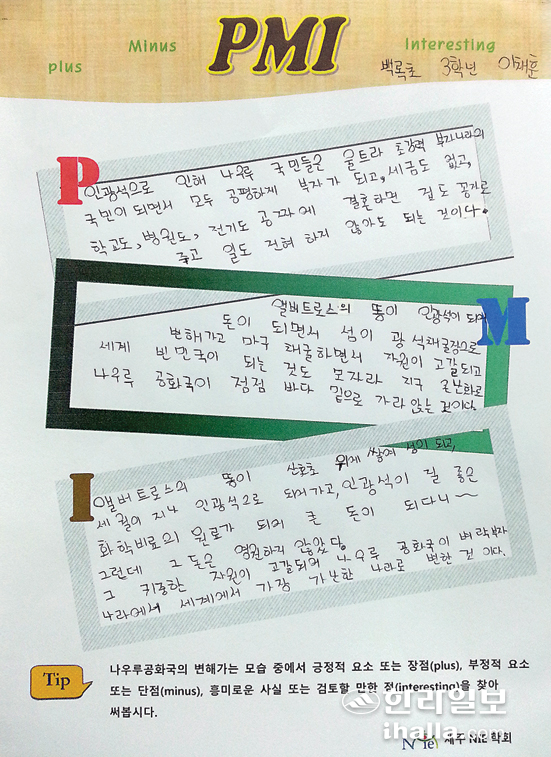 plus
Minus
PMI
Interesting
백록초 3학년 이채훈
P
인광석으로 인해 나우루 국민들은 울트라 초강력 부자나라의
국민이 되면서 모두 공평하게 부자가 되고, 세금도 없고,
학교도, 병원도, 전기도 공짜에 결혼하면 집도 공짜로
주고 일도 전혀 하지 않아도 되는 것이다.
M
앨버트로스의 똥이 인광석이 되어
돈이 되면서 섬이 광석채굴장으로
변해가고 마구 채굴하면서 자원이 고갈되고
세계 빈민국이 되는 것도 모자라 지구 온난화로
나우루 공화국이 점점 바다 밑으로 가라앉는 것이다.
I
앨버트로스의 똥이 산호초 위에 쌓여 섬이 되고,
세월이 지나 인광석으로 되어가고, 인광석이 질 좋은
화학비료의 원료가 되어 큰 돈이 되다니~
그런데 그 돈은 영원하지 않았다.
그 귀중한 자원이 고갈되어 나우루 공화국이 벼락부자
나라에서 세계에서 가장 가난한 나라로 변한 것이다.
Tip
나우루공화국의 변해가는 모습 중에서 긍정적 요소 또는 장점(plus), 부정적 요소
또는 단점(minus), 흥미로운 사실 또는 검토할 만한 점(interesting)을 찾아
써봅시다.
한라일보
ihalla.com
NIE 제주 NIE 학회